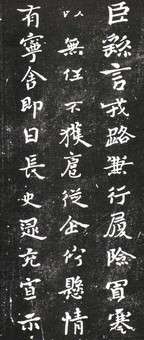 臣繇言戎路兼行履險冒寒
以無任不獲扈從企佇懸情
有寧舍即日長史逯充宣示